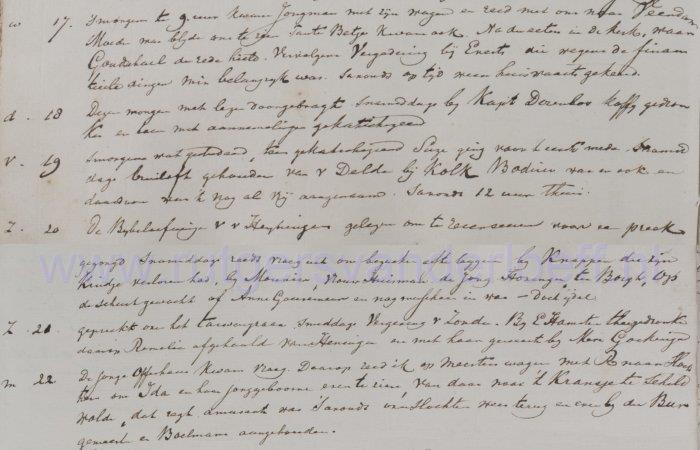 w 17. Smorgens te 9 uur kwam Jongman met zijn wagen en reed met ons naar Veendam
Moeder was blijde ons te zien Tante Betje kwam ook. Na de eeten in de kerk, waar
de rede hield. Vervolgens Vergadering bij Everts die wegens de finan
tieele dingen min belangrijk was. Savonds op tijd weer huiswaarts gekeerd.
d. 18 Dezen morgen met lezen doorgebragt. Snamiddags by Kapt Dozenbos koffy gedron
ken en toen met aannemelingen gekatichiseerd
v. 19 Smorgens wat gestudeerd, toen gekatechiseerd Suze ging voor 't eerst mede. Snamid
dags bruiloft gehouden van v Delden bij Kolk Bodewes was er ook en
daardoor was 't nog al vrij aangenaam. Savonds 12 uur thuis.
Z. 20 De Bybeloefeningen v v Heyningen gelezen om te recenseeren voor een preek
gezorgd Snamiddags reeds vroeg uit om bezoek af te leggen by Knappen die zijn
kindje verloren had, by Mouwier, Vrouw Huisman, de Jong, Honing, te Borgh, Op
de schuit gewacht of Anne Gouverneur en nog meschien in was - doch ijdel
Z. 21 gepreekt over het tarwegraan. Smiddags Vergeving v Zonde. By E Hamster thee gedronken
daarin Remelia afgehaald van Honing en met haar geweest by Mevr Goeckinga
m 22. De jonge Offerhaus kwam vraag. Daarop reed ik op Meesters wagen met R naar Hoek
hen om Ida en haar jonggeborene even te zien van daar naar 't Kransje te Schild
wolde, dat regt amusant was Savonds van Slochteren weer terug en even by den Bur
gemeest en Boelmans aangehouden.
www.rutgersvanderloeff.nl